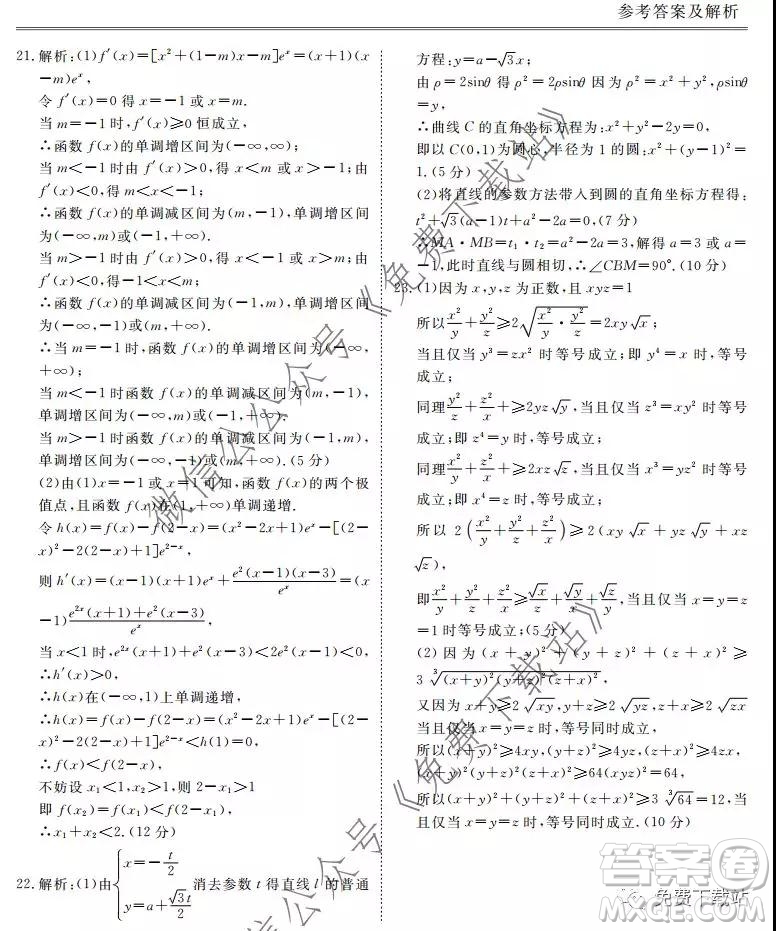 参考答案及解析
21.解析:(1)f′(x)=[x²+(1-m)x-m]eˣ=(x+1)(x
-m)eˣ,
令 f′(x)=0 得 x=-1 或 x=m.
当 m=-1 时,f′(x)≥0 恒成立,
∴函数 f(x)的单调增区间为(-∞,∞);
当 m<-1 时由 f′(x)>0,得 x<m 或 x>-1;由
f′(x)<0,得 m<x<-1;
∴函数 f(x)的单调减区间为(m,-1),单调增区间
为(-∞,m)或(-1,+∞).
当 m>-1 时由 f′(x)>0,得 x<-1 或 x>m;由
f′(x)<0,得-1<x<m;
∴函数 f(x)的单调减区间为(-1,m),单调增区间
为(-∞,-1)或(m,+∞);
∴当 m=-1 时,函数 f(x)的单调增区间为(-∞,
+∞);
当 m<-1 时函数 f(x)的单调减区间为(m,-1),
单调增区间为(-∞,m)或(-1,+∞);
当 m>-1 时函数 f(x)的单调减区间为(-1,m),
单调增区间为(-∞,-1)或(m,+∞).(5 分)
(2)由(1)x=-1 或 x=1 可知,函数 f(x)的两个极
值点,且函数 f(x)在(1,+∞)单调递增.
令 h(x)=f(x)-f(2-x)=(x²-2x+1)eˣ-[(2-
x)²-2(2-x)+1]e²⁻ˣ
则 h′(x)=(x-1)(x+1)eˣ+e²(x-1)(x-3)/eˣ=(x
-1)e²ˣ(x+1)+e²(x-3)/eˣ,
当 x<1 时,e²ˣ(x+1)+e²(x-3)<2e²(x-1)<0,
∴h′(x)>0,
∴h(x)在(-∞,1)上单调递增,
∴h(x)=f(x)-f(2-x)=(x²-2x+1)eˣ-[(2-
x)²-2(2-x)+1]e²⁻ˣ<h(1)=0,
∴f(x)<f(2-x),
不妨设 x₁<1,x₂>1,则 2-x₁>1
即 f(x₂)=f(x₁)<f(2-x₁),
∴x₁+x₂<2.(12 分)
22.解析:(1)由{x=-t/2 y=a+√3t/2 消去参数 t 得直线 l 的普通
方程:y=a-√3x;
由 ρ=2sinθ 得 ρ²=2ρsinθ 因为 ρ²=x²+y²,ρsinθ
=y,
∴曲线 C 的直角坐标方程为:x²+y²-2y=0,
即以 C(0,1)为圆心,半径为 1 的圆:x²+(y-1)²=
1.(5 分)
(2)将直线的参数方法带入到圆的直角坐标方程得:
t²+√3(a-1)t+a²-2a=0,(7 分)
∴MA·MB=t₁·t₂=a²-2a=3,解得 a=3 或 a=
-1,此时直线与圆相切,∴∠CBM=90°.(10 分)
23.(1)因为 x,y,z 为正数,且 xyz=1
所以x²/y+y²/z≥2√(x²/y·y²/z)=2xy√x;
当且仅当 y³=zx² 时等号成立;即 y⁴=x 时,等号
成立;
同理y²/z+z²/x+≥2yz√y,当且仅当 z³=xy² 时等号
成立;即 z⁴=y 时,等号成立;
同理x²/y+z²/x+≥2xz√z,当且仅当 x³=yz² 时等号
成立;即 x⁴=z 时,等号成立;
所以 2(x²/y+y²/z+z²/x)≥2(xy√x+yz√y+xz
√z),
即x²/y+y²/z+z²/x≥√x/z+√y/x+√z/y,当且仅当 x=y=z
=1 时等号成立;(5 分)
(2)因为(x+y)²+(y+z)²+(z+x)²≥
3∛((x+y)²(y+z)²(z+x)²),
又因为 x+y≥2√xy,y+z≥2√yz,z+x≥2√zx
当且仅当 x=y=z 时,等号同时成立,
所以(x+y)²≥4xy,(y+z)²≥4yz,(z+x)²≥4zx,
(x+y)²(y+z)²(z+x)²≥64(xyz)²=64,
所以(x+y)²+(y+z)²+(z+x)²≥3∛64=12,当
且仅当 x=y=z 时,等号同时成立.(10 分)
微信公众号《免费下载站》
微信公众号《免费下载站》
免费下载站
答案圈
MXQE.COM